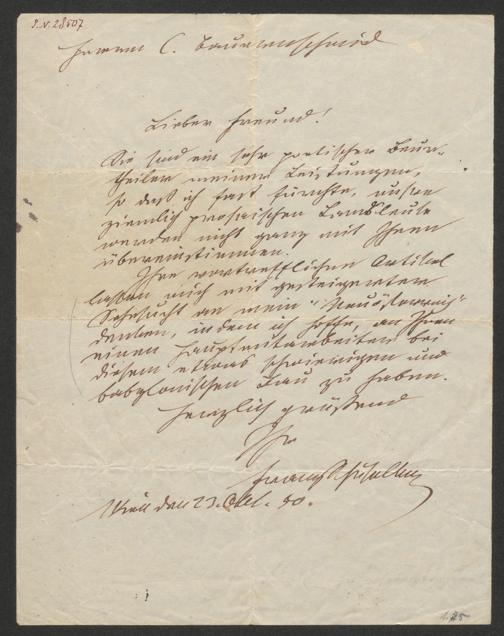 I.N. 28507
Herrn C. Bauernschmid
Lieber Freund!
Sie sind ein sehr poetischer Beur-
theiler meiner Leistungen,
so daß ich fast fürchte, unsere
ziemlich prosaischen Landsleute
werden nicht ganz mit Ihnen
übereinstimmen.
Ihre vortrefflichen Artikel
lassen mich mit gesteigerter
Sehnsucht an mein "Neuösterreich"
denken, indem ich hoffe, an Ihnen
einen Hauptmitarbeiter bei
diesem etwas schwierigen und
babylonischen Bau zu haben.
Herzlich grüßend
Ihr
Franz Schuselka
Wien den 23. Okt. 50.